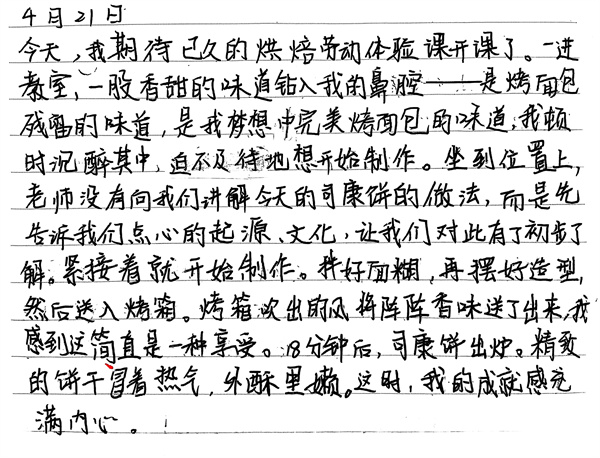 4月21日
今天,我期待已久的烘焙劳动体验课开课了。一进
教室,一股香甜的味道钻入我的鼻腔——是烤面包
残留的味道,是我梦想中完美烤面包的味道,我顿
时沉醉其中,迫不及待地想开始制作。坐到位置上,
老师没有向我们讲解今天的司康饼的做法,而是先
告诉我们点心的起源、文化,让我们对此有了初步了
解。紧接着就开始制作。拌好面糊,再摆好造型,
然后送入烤箱。烤箱吹出的风将阵阵香味送了出来,我
感到这简直是一种享受。18分钟后,司康饼出炉。精致
的饼干冒着热气,外酥里嫩。这时,我的成就感充
满内心。